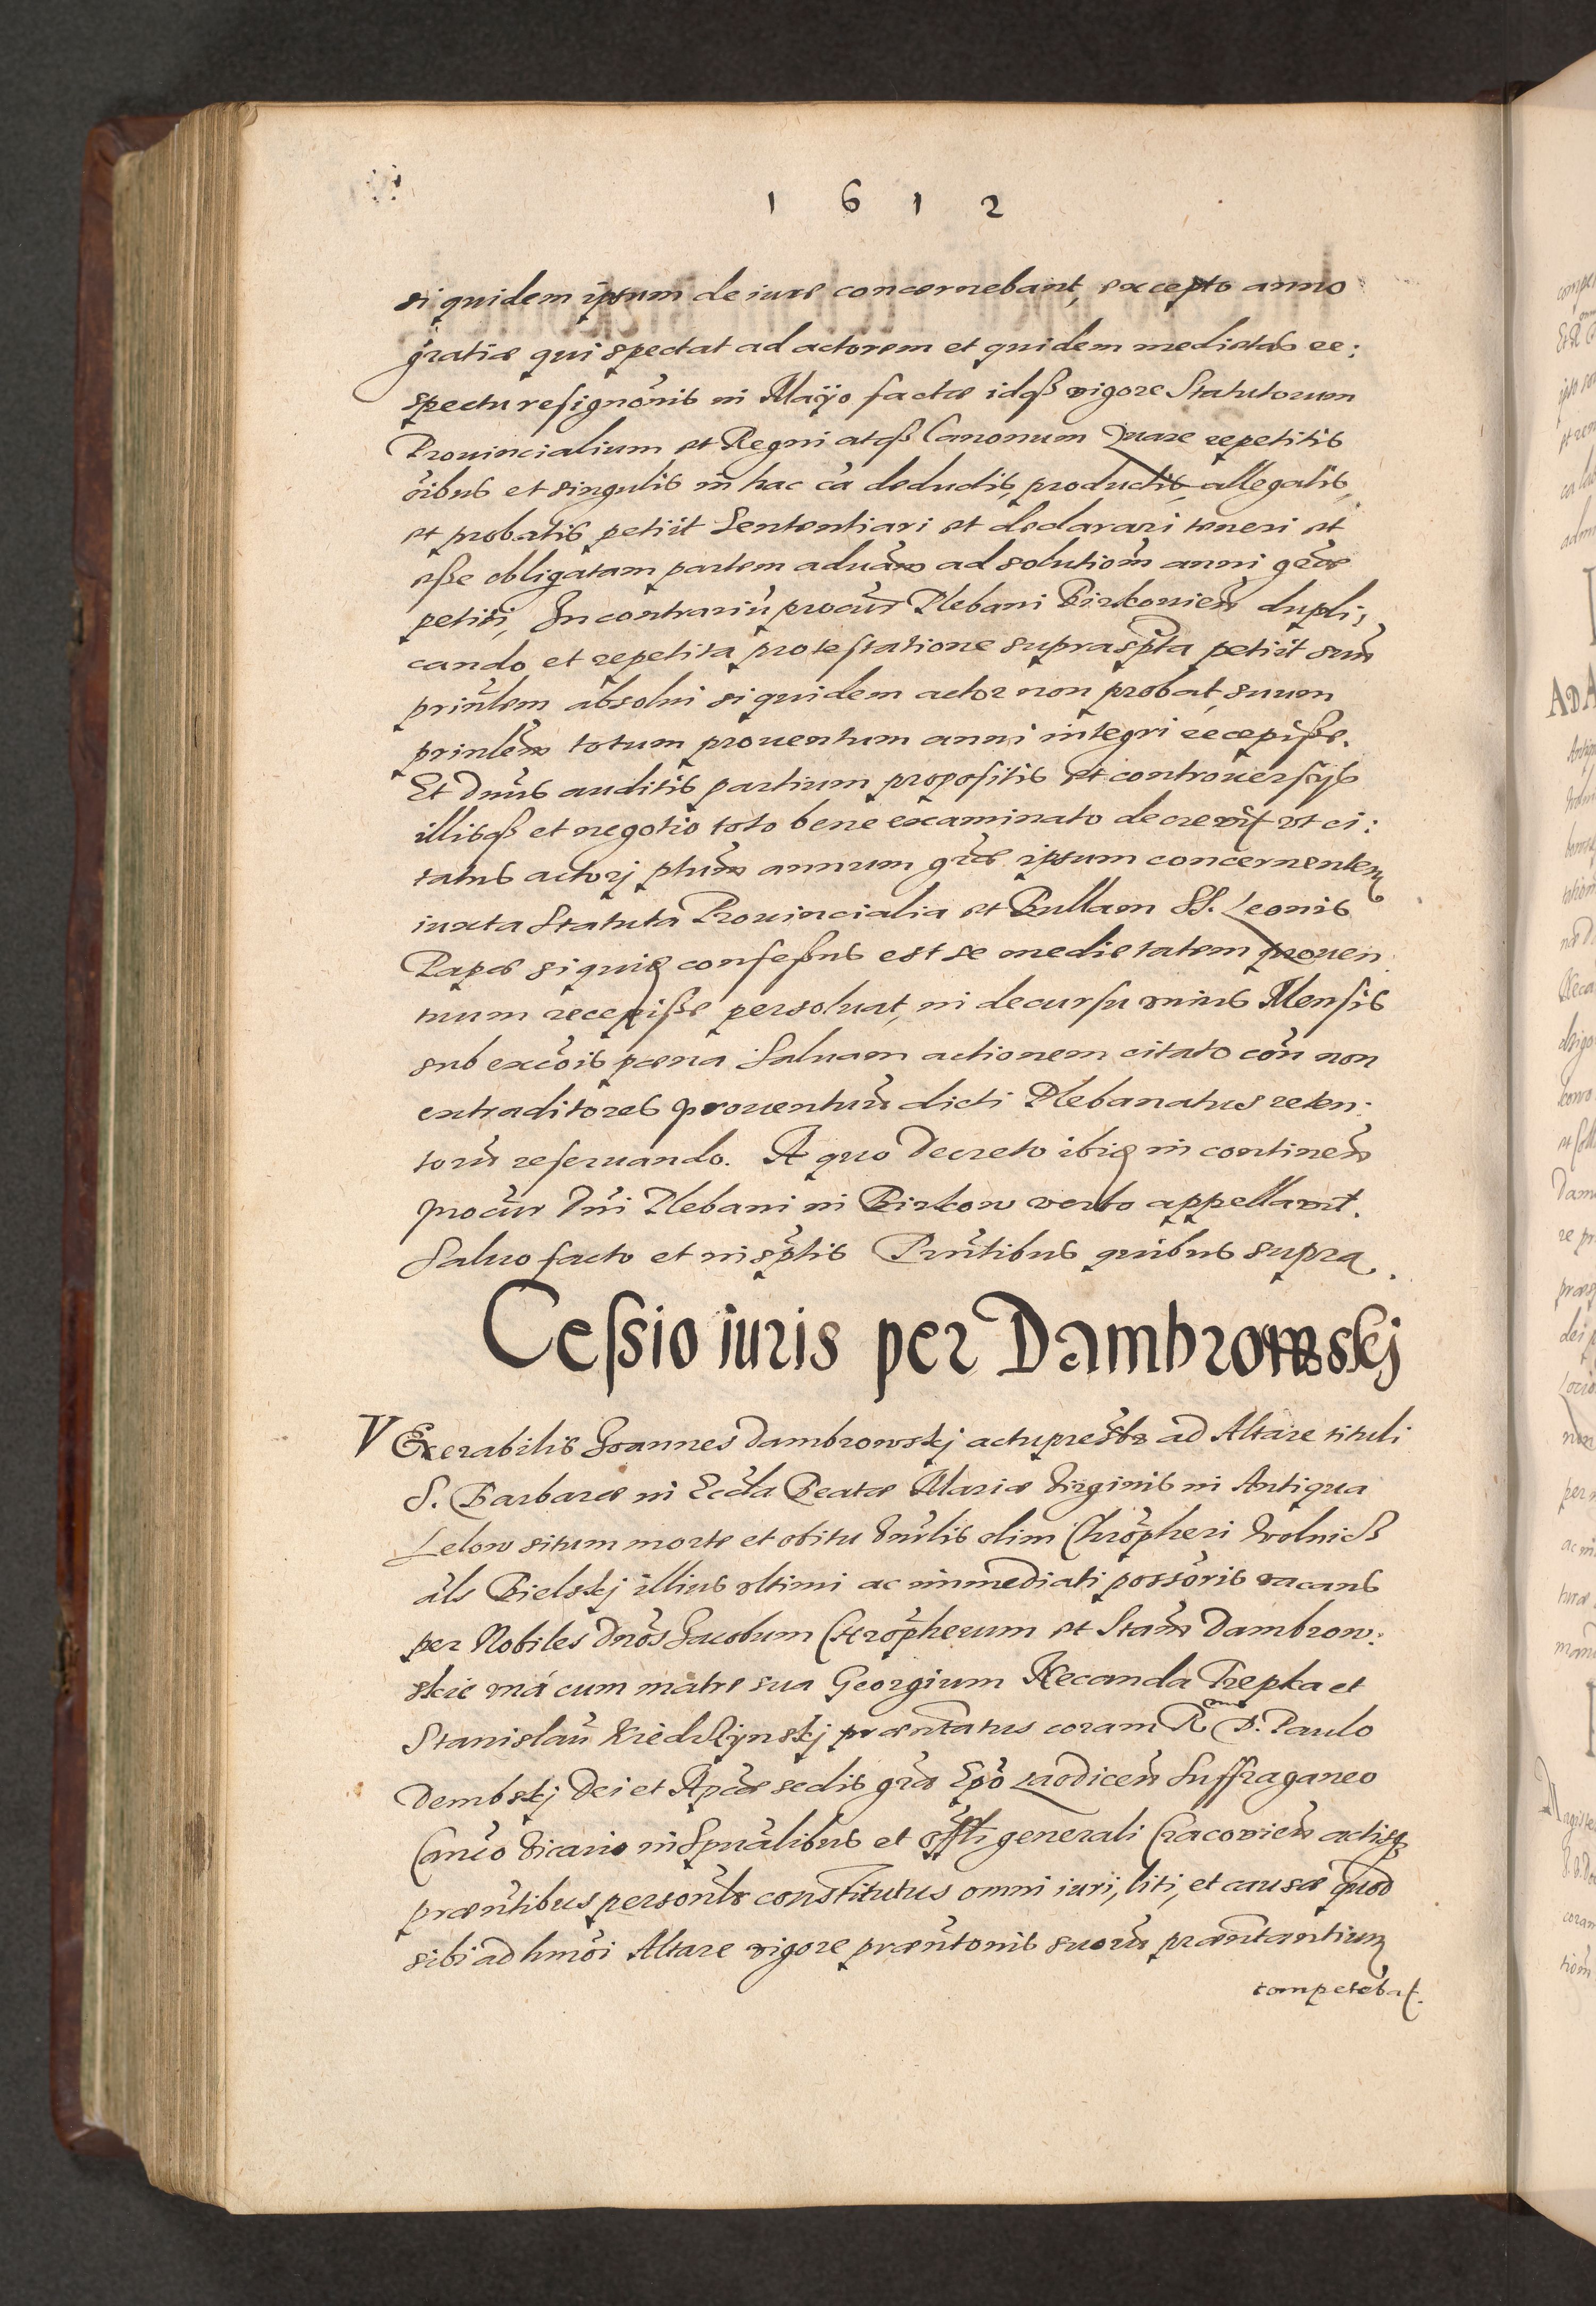 1 6 1 2
siquidem ipsum de iure concernebant, excepto anno
gratiæ qui spectat ad actorem et quidem medietas re:
spectu resignõnis in Mayo factæ idqß vigore Statutorum
Prouincialium et Regni atqß Canonum Quare repetitis
õibus et singulis in hac cã deductis, productis allegatis,
et probatis petiit Sententiari et declarari teneri et
eße obligatam partem aduãm ad solutiõm anni grãe
petiti, In contrariũ procũr Plebani Birkouieñ dupli;
cando et repetita protestatione suprasp̃ta petiit suũ
prinl̃em absolui siquidem actor non probat, suum
prinlẽm totum prouentum anni integri recepiße.
Et Dnũs auditis partium propositis et controuersijs
illisqß et negotio toto bene examinato decreuit vt ci:
tatus actorj phũm annum grãe ipsum concernentem
iuxta Statuta Prouincialia et Bullam SS. Leonis
Papæ siquidem confeßus est se medietatem prouen
tuum recepiße persoluat, in decursu vnius Mensis
sub excõis pæna Saluam actionem citato cõn non
extraditores prouentuũ dicti Plebanatus reten:
torũ reseruando. A quo Decreto ibidem in contineñ
procũr Dñi Plebani in Birkow verbo appellauit.
Saluo facto et in sp̃tis Prñtibus quibus supra.
Ceßio iuris per Dambrowskj
VEnerabilis Joannes Dambrowskj actu presb̃r ad Altare tituli
S. Barbaræ in Eccl̃a Beatæ Mariæ Virginis in Antiqua
Lelow situm morte et obitu Vnĩlis olim Chrõpheri Wolnicß
als Bielskj illius vltimi ac immediati poßõris vacans
per Nobiles Dnõs Jacobum Chrõpherum et Stañ Dambrow:
skie vná cum matre sua Georgium Necanda Trepka et
Stanislaũ Kiedrzynskj præntatus coram Rmo D. Paulo
Dembskj Dei et Aplicæ sedis grã Epõ Laodiceñ Suffraganeo
Canco Vicario in Spũalibus et Offli generali Cracouieñ actisq
præñtibus personl̃r constitutus omni iuri, liti, et causæ quod
sibi ad hmõi Altare vigore præñtonis suorũ præntantium
competebat.